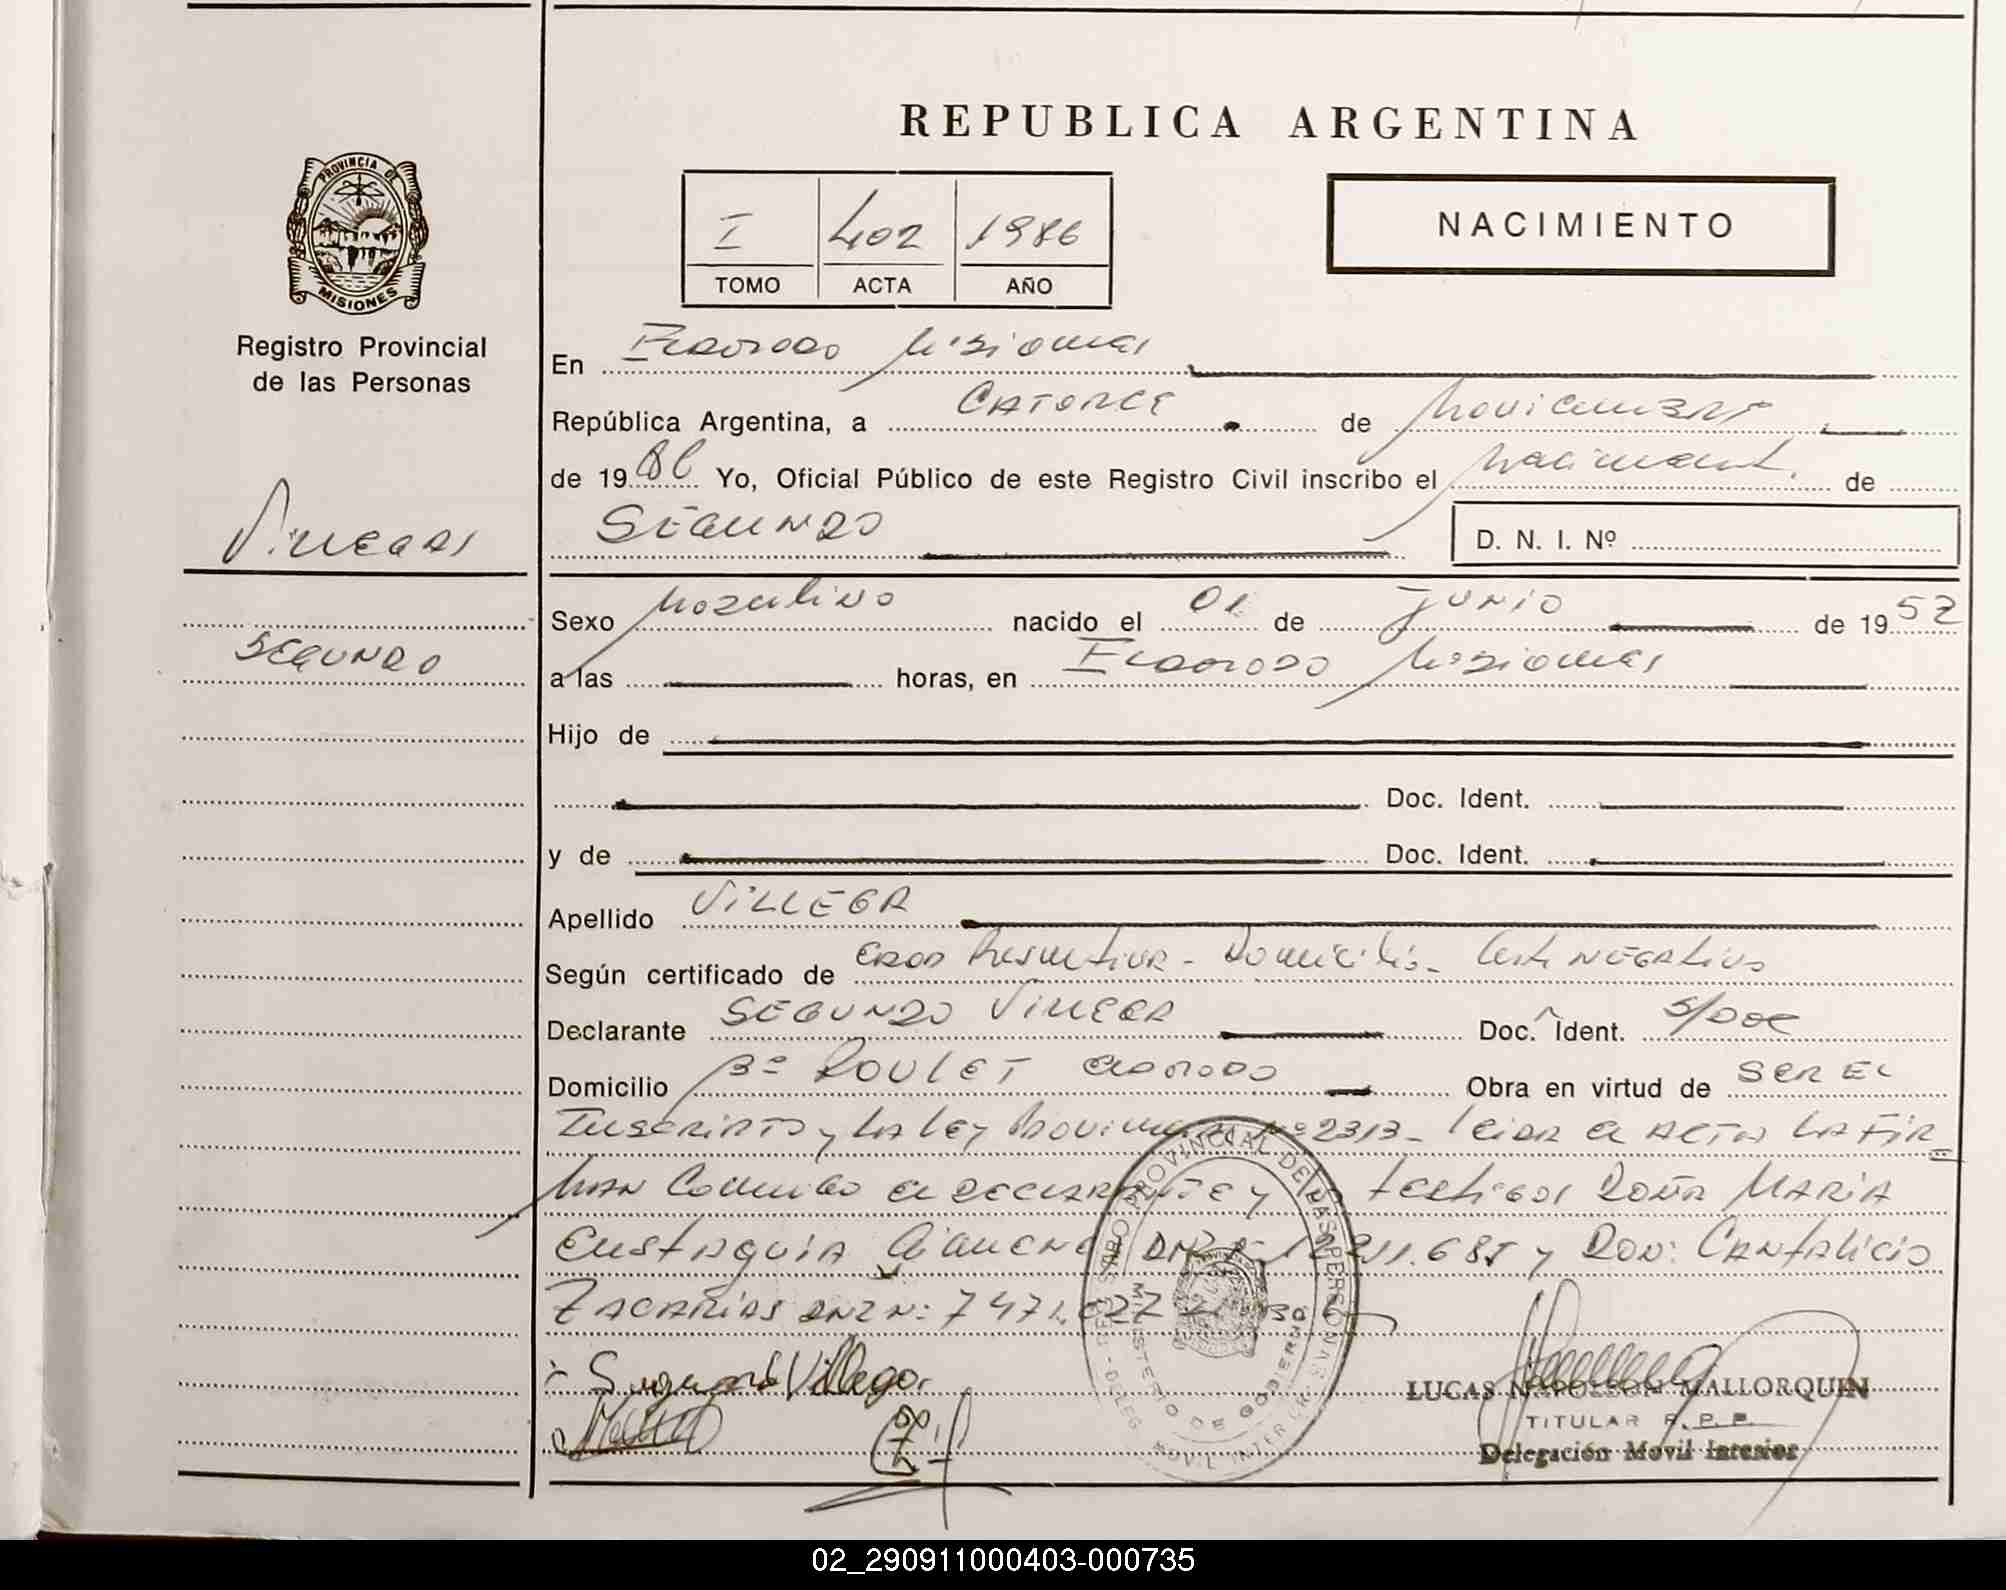 REPUBLICA ARGENTINA
PROVINCIA DE
MISIONES
Registro Provincial
de las Personas
I 402 1986
TOMO ACTA AÑO
NACIMIENTO
En Eldorado Misiones
República Argentina, a Catorce de Noviembre
de 1986 Yo, Oficial Público de este Registro Civil inscribo el Nacimiento de
SEGUNDO
D. N. I. Nº
Villegas
SEGUNDO
Sexo Masculino nacido el 01 de JUNIO de 1952
a las horas, en Eldorado Misiones
Hijo de
Doc. Ident.
y de Doc. Ident.
Apellido VILLEGA
Según certificado de Edad Presuntiva - Domicilio - Cert. NEGATIVO
Declarante SEGUNDO VILLEGA Doc. Ident. S/Doc
Domicilio Bº ROULET Eldorado Obra en virtud de SER EL
Inscripto y LA LEY Provincial Nº 2313 - Leida el ACTA LA FIR
MAN Conmigo el DECLARANTE y testigos DOÑA MARIA
EUSTAQUIA DNI 211.685 y DON: CANTALICIO
ZACARIAS DNI N: 7471.027
Segundo Villega
REGISTRO PROVINCIAL DE LAS PERSONAS
MINISTERIO DE GOBIERNO
DELEG. MOVIL INTERIOR
LUCAS NAPOLEON MALLORQUIN
TITULAR R.P.P.
Delegación Movil Interior
02_290911000403-000735